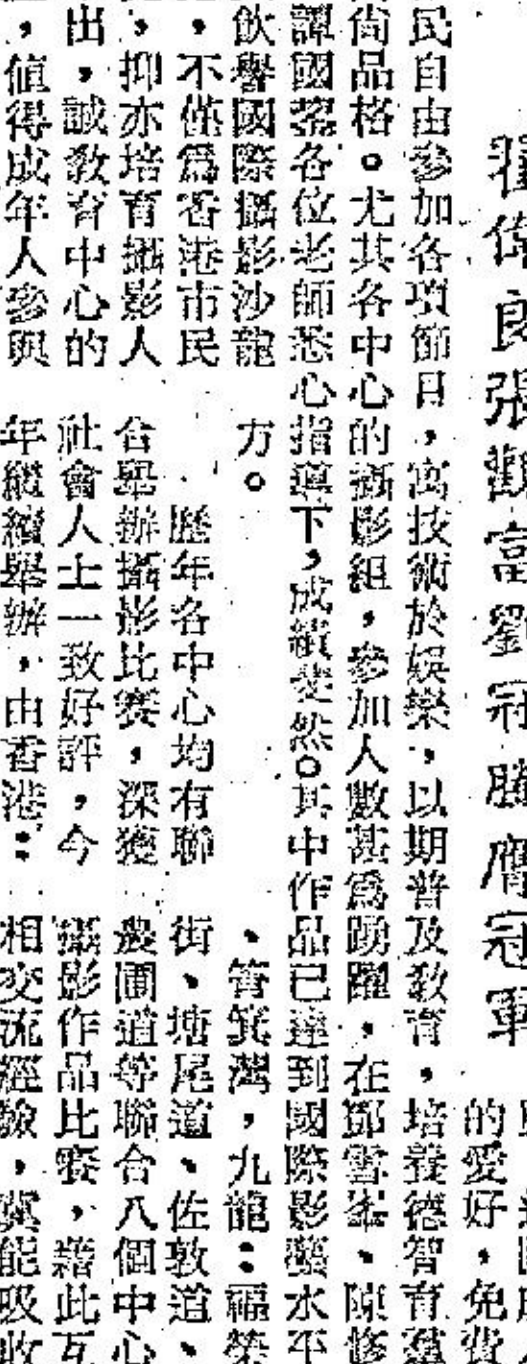 翟偉良張觀富劉冠勝膺冠軍
的愛好，免費
民自由參加各項節目，寓技術於娛樂，以期普及教育，培養德智育羣
尚品格。尤其各中心的攝影組，參加人數甚為踴躍，在鄧雪峯、陳修
譚國榮各位老師悉心指導下，成績斐然。其中作品已達到國際影藝水平
飲譽國際攝影沙龍
，不僅爲香港市民
，抑亦培育攝影人
出，誠教育中心的
，值得成年人參與
方。
歷年各中心均有聯
合舉辦攝影比賽，深獲
社會人士一致好評，今
年繼續舉辦，由香港：
、筲箕灣，九龍：福榮
街、塘尾道、佐敦道、
農圃道等聯合八個中心
攝影作品比賽，藉此互
相交流經驗，冀能吸收